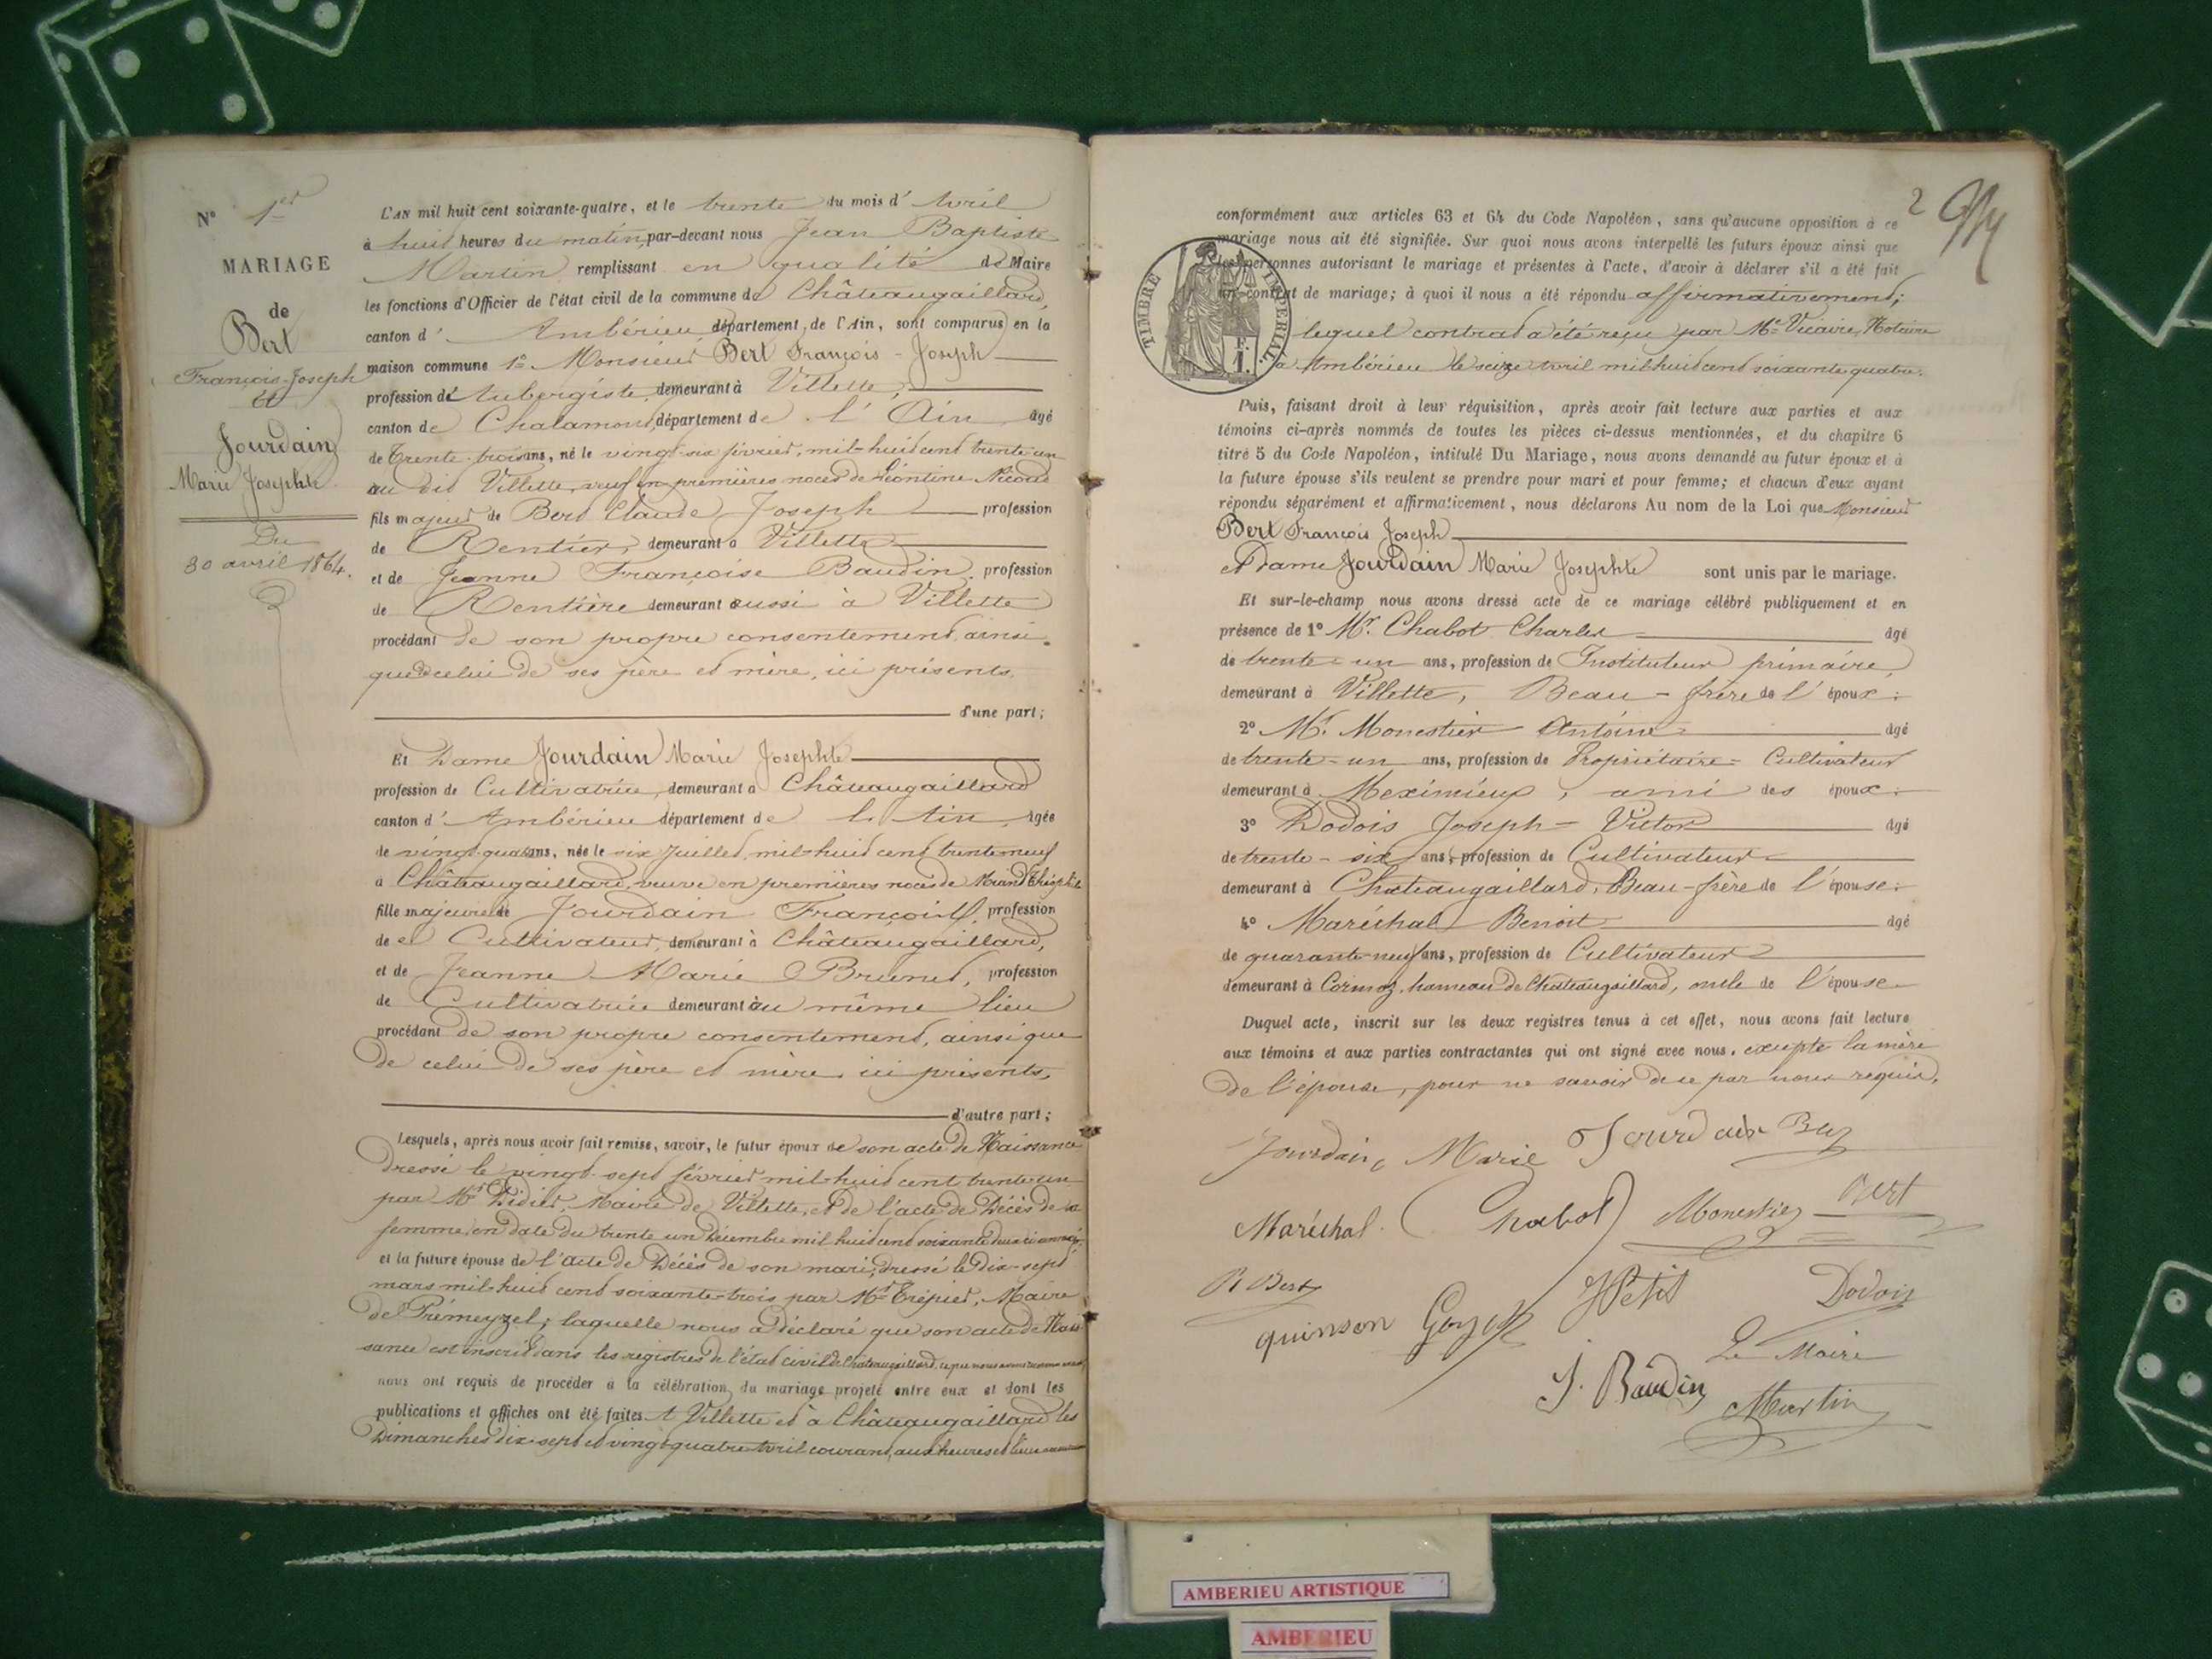 N° 1er
MARIAGE
de
Bert
François-Joseph
et
Jourdain
Marie Josephte
Du
30 avril 1864.
L'AN mil huit cent soixante-quatre, et le trente du mois d'Avril
à huit heures du matin, par-devant nous Jean Baptiste
Martin remplissant en qualité de Maire
les fonctions d'Officier de l'état civil de la commune de Châteaugaillard,
canton d'Ambérieu, département de l'Ain, sont comparus en la
maison commune 1° Monsieur Bert François-Joseph
profession d'Aubergiste, demeurant à Villette,
canton de Chalamont, département de l'Ain âgé
de Trente-trois ans, né le vingt-six février, mil-huit cent trente-un
au dit Villette, veuf en premières noces de Léontine
fils majeur de Bert Claude Joseph profession
de Rentier, demeurant à Villette
et de Jeanne Françoise Baudin, profession
de Rentière demeurant aussi à Villette
procédant de son propre consentement ainsi
que de celui de ses père et mère, ici présents,
d'une part;
Et Dame Jourdain Marie Josephte
profession de Cultivatrice, demeurant à Châteaugaillard
canton d'Ambérieu département de l'Ain, âgée
de vingt-quatre ans, née le six Juillet, mil-huit cent trente neuf
à Châteaugaillard, veuve en premières noces de Théophile
fille majeure de Jourdain François, profession
de Cultivateur, demeurant à Châteaugaillard,
et de Jeanne Marie Brunet, profession
de Cultivatrice demeurant au même lieu
procédant de son propre consentement, ainsi que
de celui de ses père et mère, ici présents,
d'autre part;
Lesquels, après nous avoir fait remise, savoir, le futur époux de son acte de Naissance
dressé le vingt-sept février mil-huit cent trente-un
par Mr Didier, Maire de Villette, et de l'acte de Décès de sa
femme, en date du trente un Décembre mil huit cent soixante deux
et la future épouse de l'acte de Décès de son mari, dressé le dix-sept
mars mil-huit cent soixante-trois par Mr Trépier, Maire
de Prémeyzel; laquelle nous a déclaré que son acte de Nais-
sance est inscrit dans les registres de l'état civil de Châteaugaillard, ce que nous avons
nous ont requis de procéder à la célébration du mariage projeté entre eux et dont les
publications et affiches ont été faites à Villette et à Châteaugaillard les
Dimanches dix-sept et vingt-quatre Avril courant, aux heures et lieux
2
conformément aux articles 63 et 64 du Code Napoléon, sans qu'aucune opposition à ce
mariage nous ait été signifiée. Sur quoi nous avons interpellé les futurs époux ainsi que
les personnes autorisant le mariage et présentes à l'acte, d'avoir à déclarer s'il a été fait
un contrat de mariage; à quoi il nous a été répondu affirmativement;
lequel contrat a été reçu par Me Vicaire, Notaire
à Ambérieu le seize Avril mil huit cent soixante quatre.
TIMBRE IMPÉRIAL
1F.
Puis, faisant droit à leur réquisition, après avoir fait lecture aux parties et aux
témoins ci-après nommés de toutes les pièces ci-dessus mentionnées, et du chapitre 6
titre 5 du Code Napoléon, intitulé Du Mariage, nous avons demandé au futur époux et à
la future épouse s'ils veulent se prendre pour mari et pour femme; et chacun d'eux ayant
répondu séparément et affirmativement, nous déclarons Au nom de la Loi que Monsieur
Bert François Joseph
et Dame Jourdain Marie Josephte sont unis par le mariage.
Et sur-le-champ nous avons dressé acte de ce mariage célébré publiquement et en
présence de 1° Mr. Chabot Charles âgé
de trente-un ans, profession de Instituteur primaire,
demeurant à Villette, Beau-frère de l'époux:
2° Mr. Monestier Antoine âgé
de trente-un ans, profession de Propriétaire-Cultivateur
demeurant à Meximieux, ami des époux:
3° Dodois Joseph-Victor âgé
de trente-six ans, profession de Cultivateur
demeurant à Châteaugaillard, Beau-frère de l'épouse:
4° Maréchal Benoît âgé
de quarante-neuf ans, profession de Cultivateur
demeurant à Cormoz, hameau de Châteaugaillard, oncle de l'épouse
Duquel acte, inscrit sur les deux registres tenus à cet effet, nous avons fait lecture
aux témoins et aux parties contractantes qui ont signé avec nous, excepté la mère
de l'épouse, pour ne savoir de ce par nous requis.
Jourdain Marie Jourdain
Maréchal Chabot Monestier Bert
Bert JPetit Dodois
quinson Goyet
Le Maire
J. Baudin Martin
AMBERIEU ARTISTIQUE
AMBERIEU